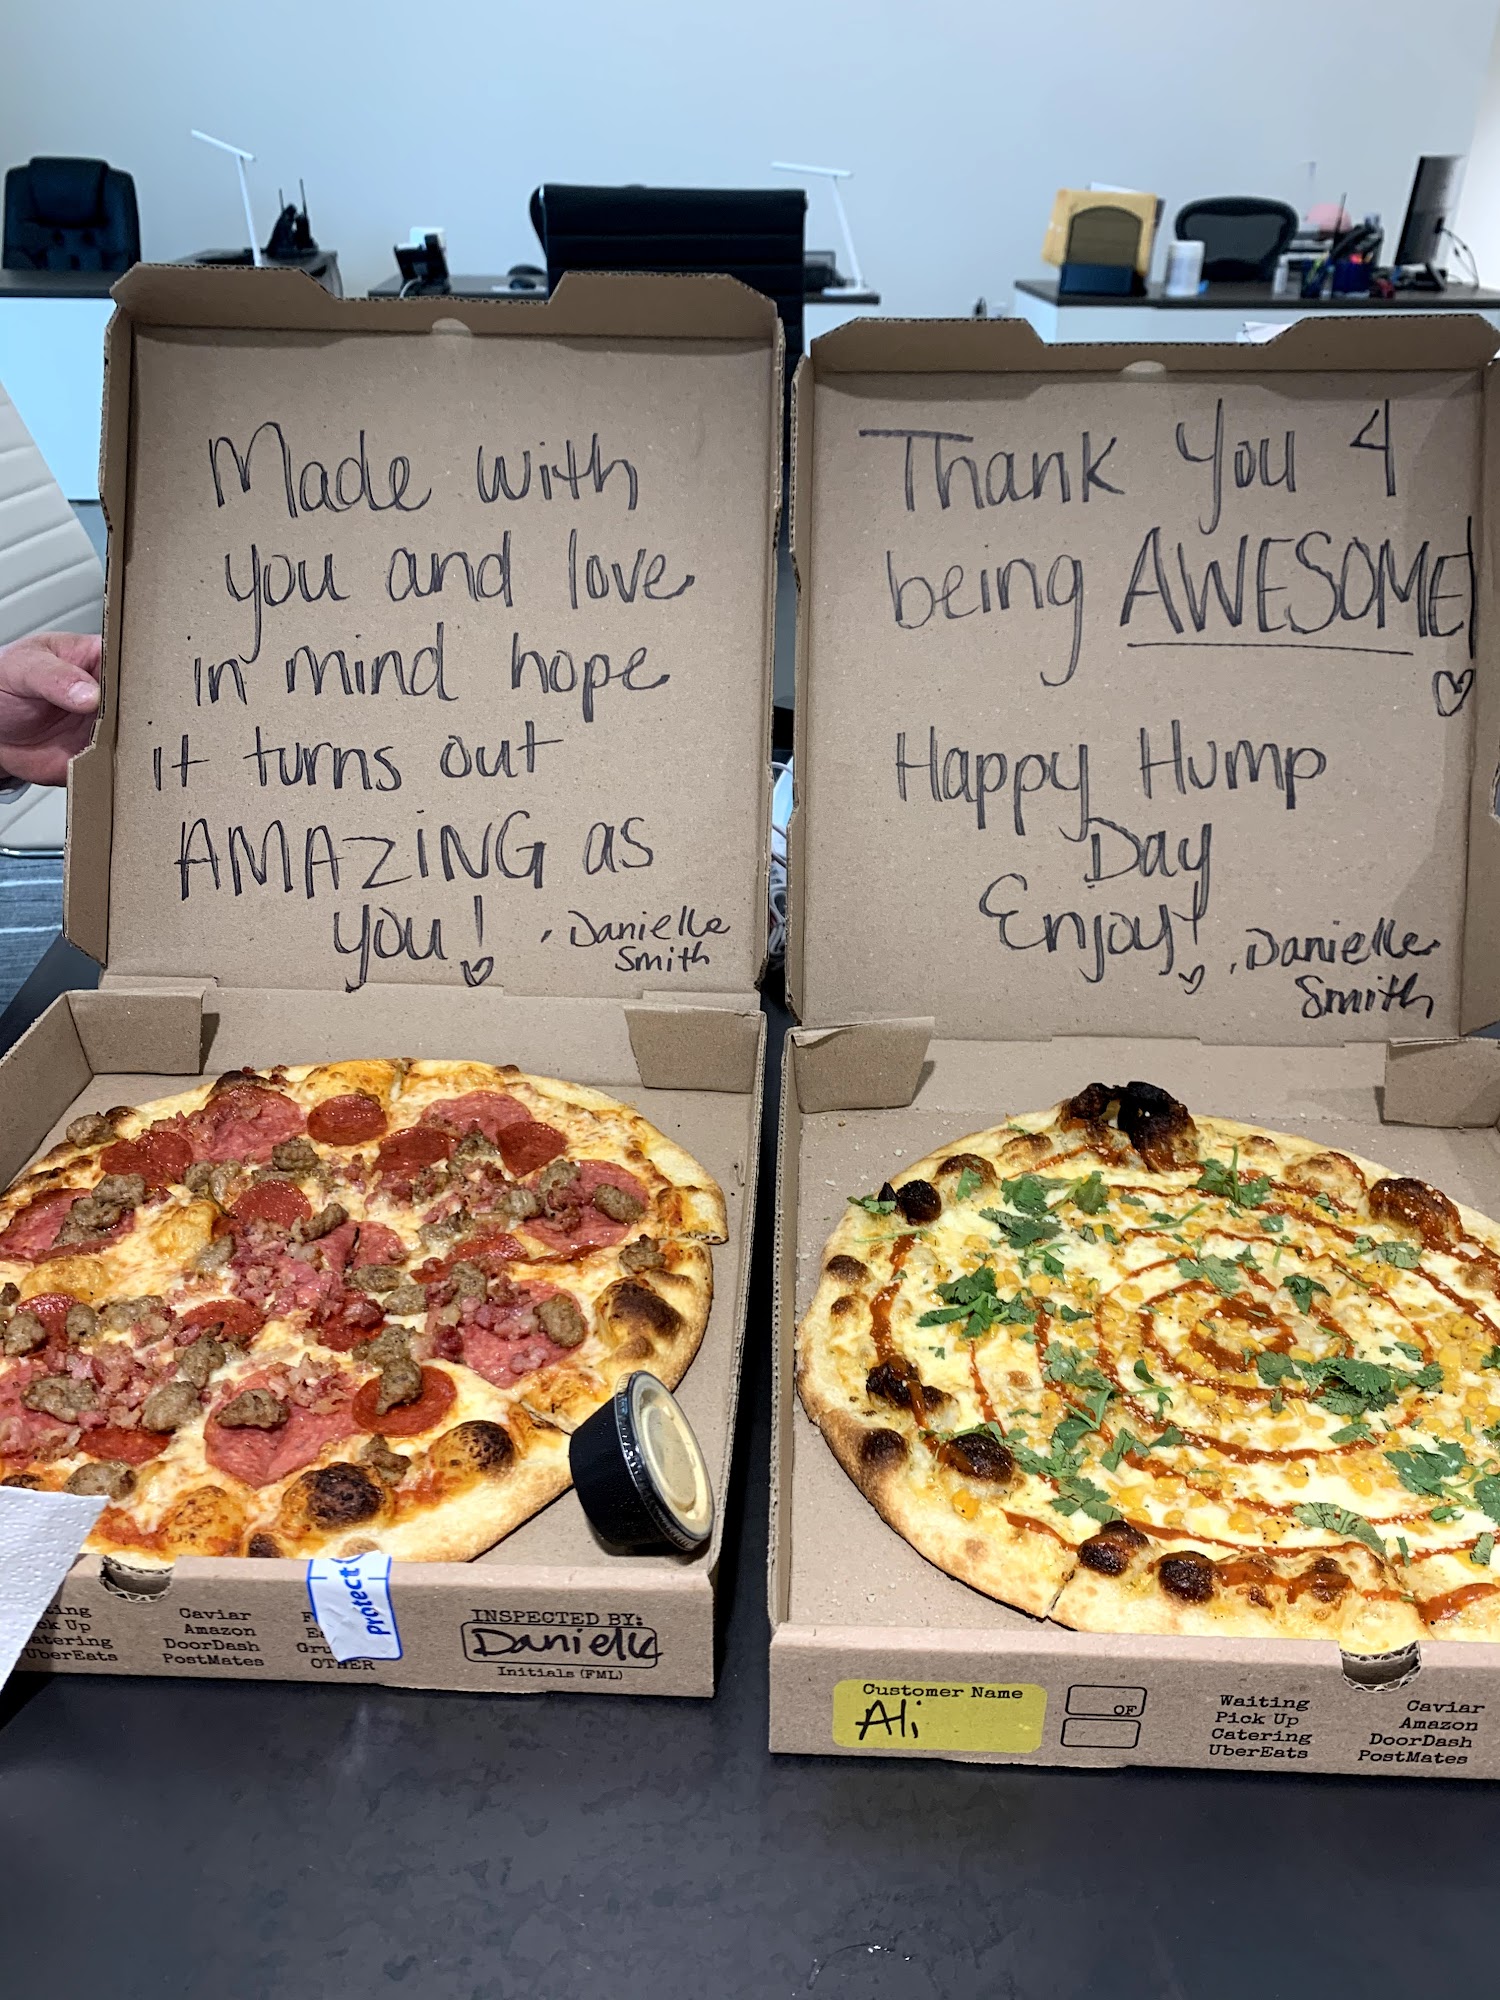 Made with
you and love
in mind hope
it turns out
AMAZING as
you!
Danielle
Smith
Thank you 4
being AWESOME!
Happy Hump
Day
Enjoy!
Danielle
Smith
Caviar
Amazon
DoorDash
PostMates
OTHER
protect
INSPECTED BY:
Danielle
Initials (FML)
UberEats
Customer Name
Ali
OF
Waiting
Pick Up
Catering
UberEats
Caviar
Amazon
DoorDash
PostMates